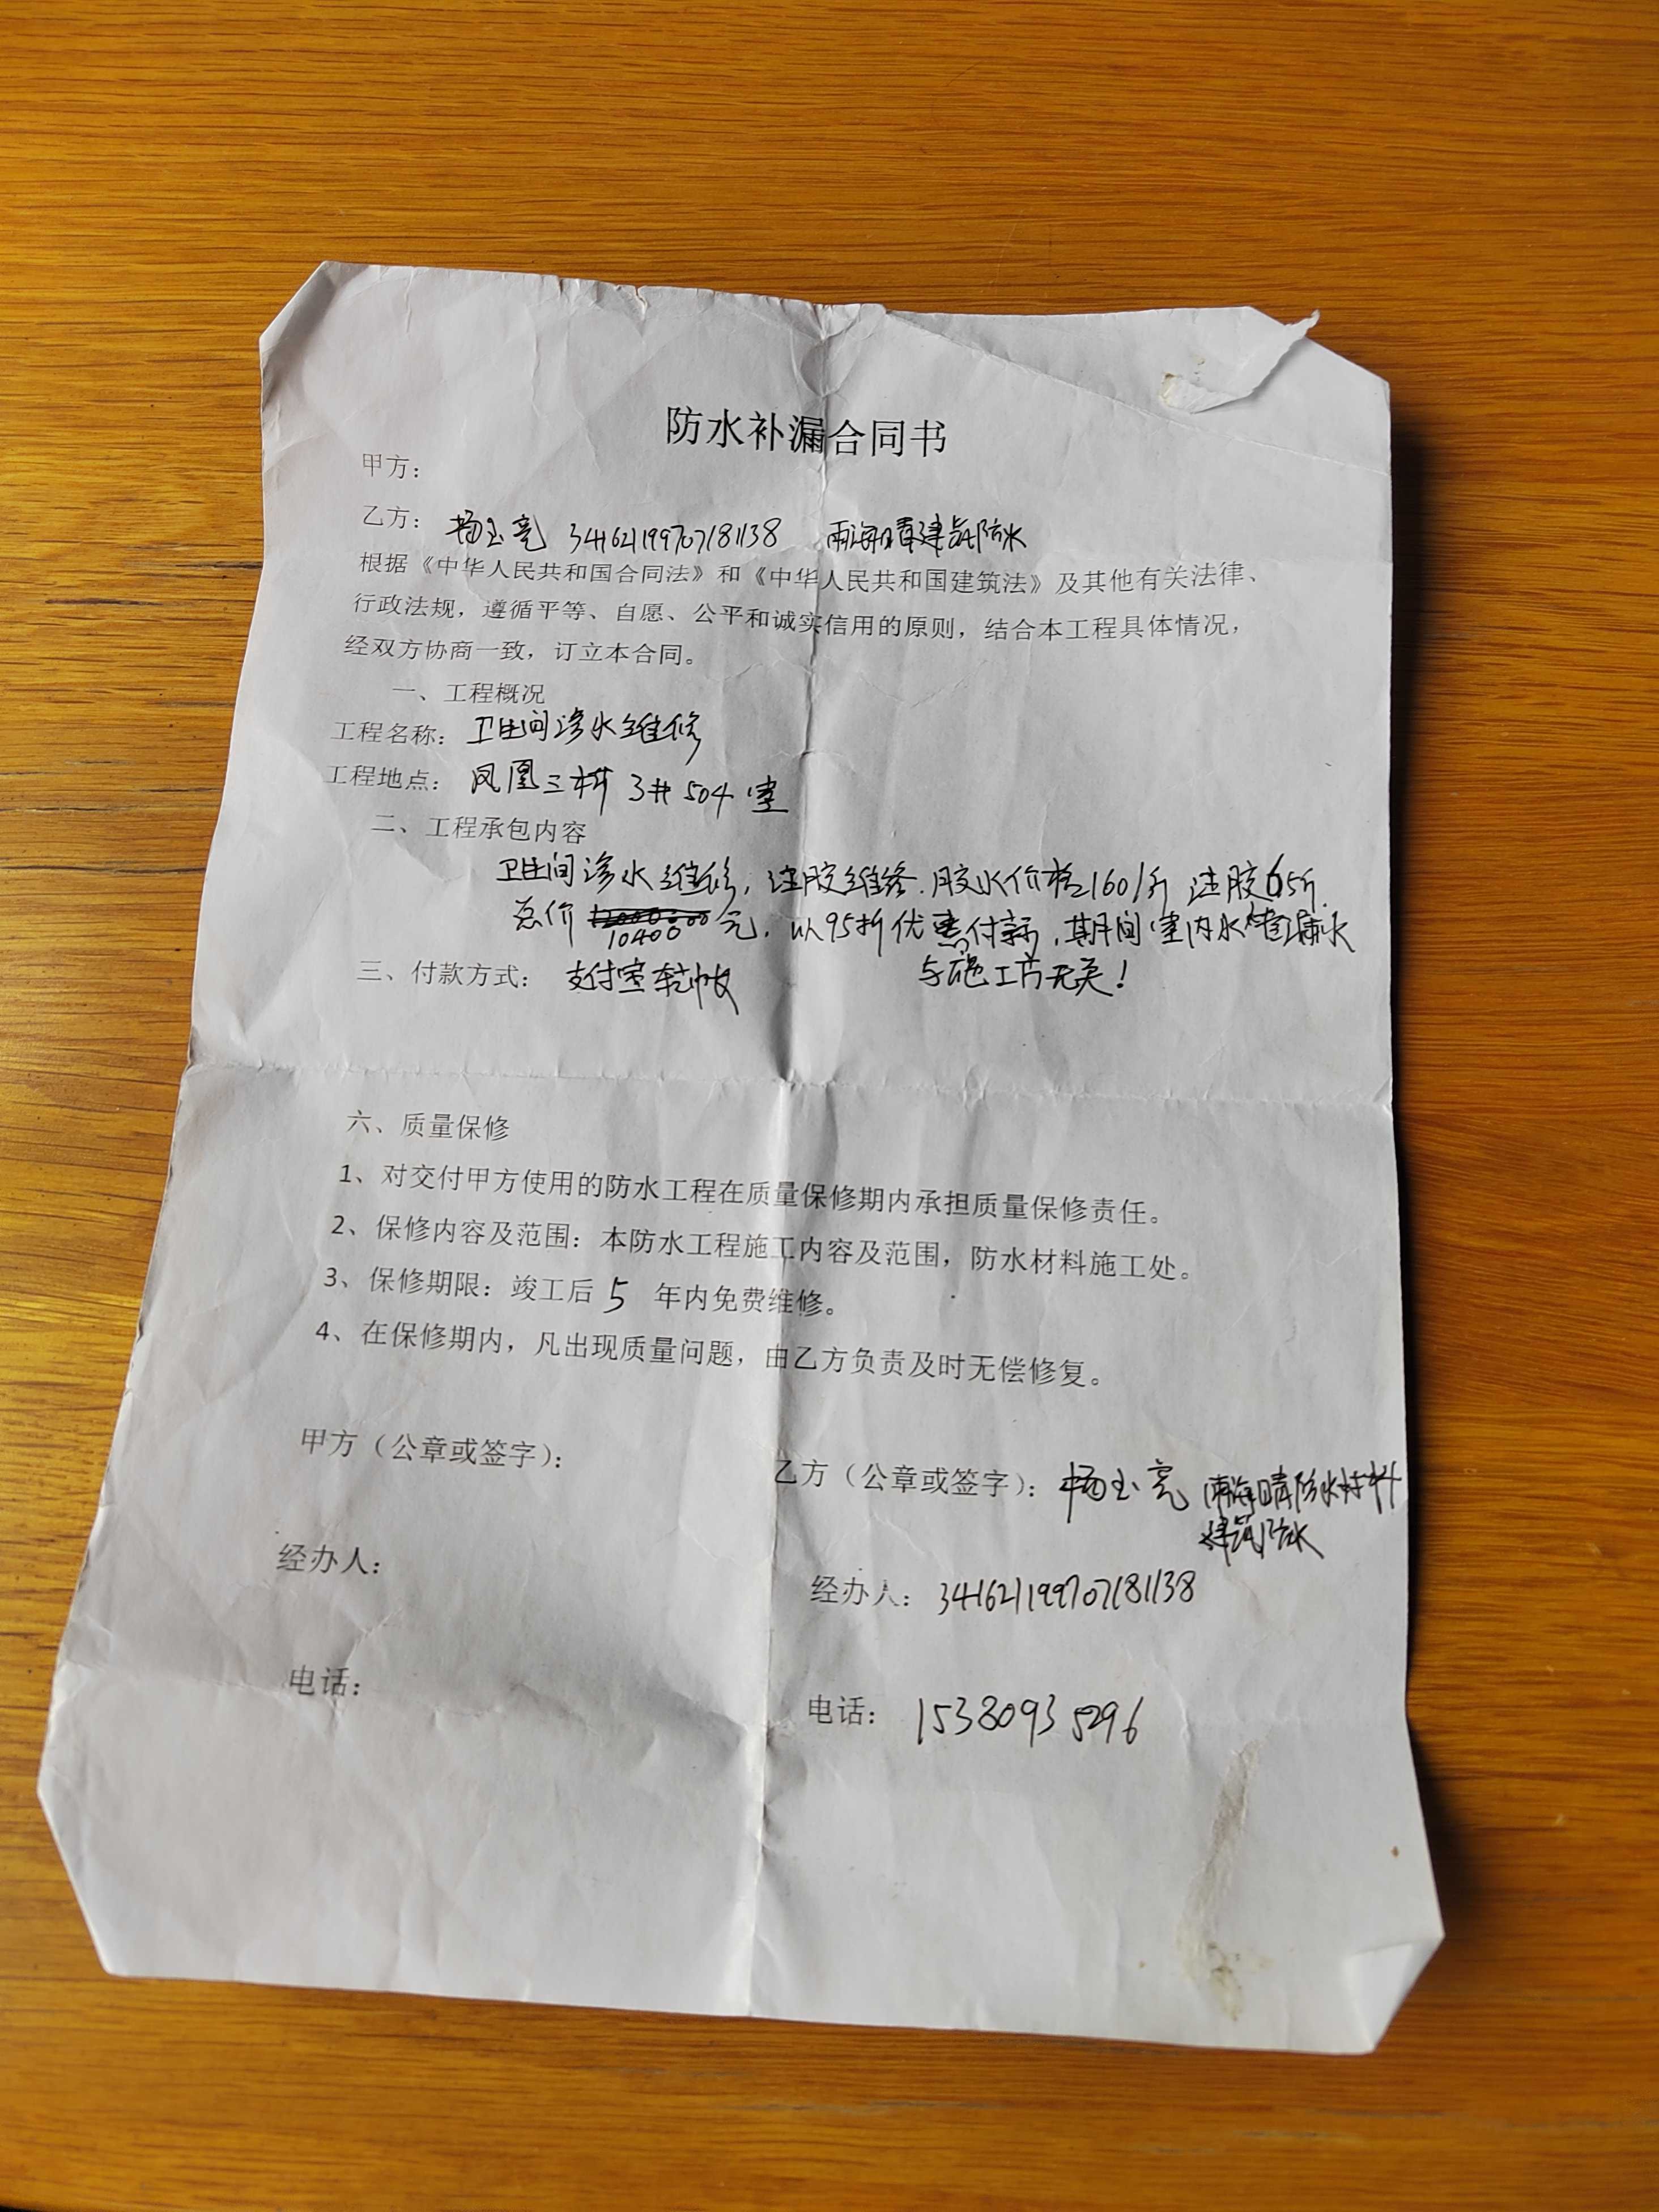 防水补漏合同书
甲方：
乙方： 杨玉亮 341621199707181138 雨海晴建筑防水
根据《中华人民共和国合同法》和《中华人民共和国建筑法》及其他有关法律、
行政法规，遵循平等、自愿、公平和诚实信用的原则，结合本工程具体情况，
经双方协商一致，订立本合同。
一、工程概况
工程名称： 卫生间渗水维修
工程地点： 凤凰三村 3# 504 室
二、工程承包内容
卫生间渗水维修，注胶维修．胶水价格160/斤 注胶65斤．
总价 10400 元．以95折优惠付款，期间室内水管漏水
与施工方无关！
三、付款方式： 支付宝转帐
六、质量保修
1、对交付甲方使用的防水工程在质量保修期内承担质量保修责任。
2、保修内容及范围：本防水工程施工内容及范围，防水材料施工处。
3、保修期限：竣工后 5 年内免费维修。
4、在保修期内，凡出现质量问题，由乙方负责及时无偿修复。
甲方（公章或签字）：
乙方（公章或签字）： 杨玉亮 雨海晴防水材料
建筑防水
经办人：
经办人： 341621199707181138
电话：
电话： 15380935296